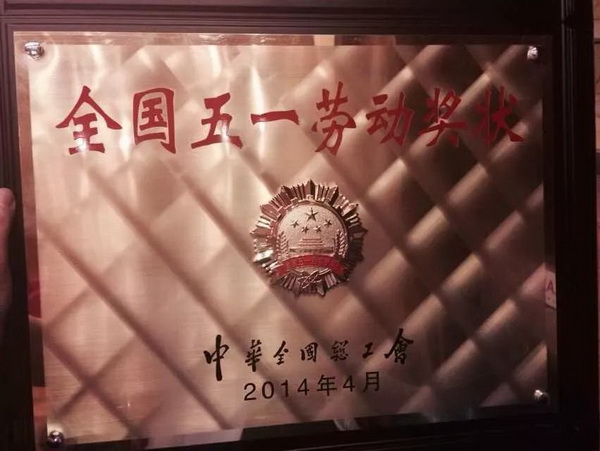 全国五一劳动奖状
中华全国総工會
2014年4月